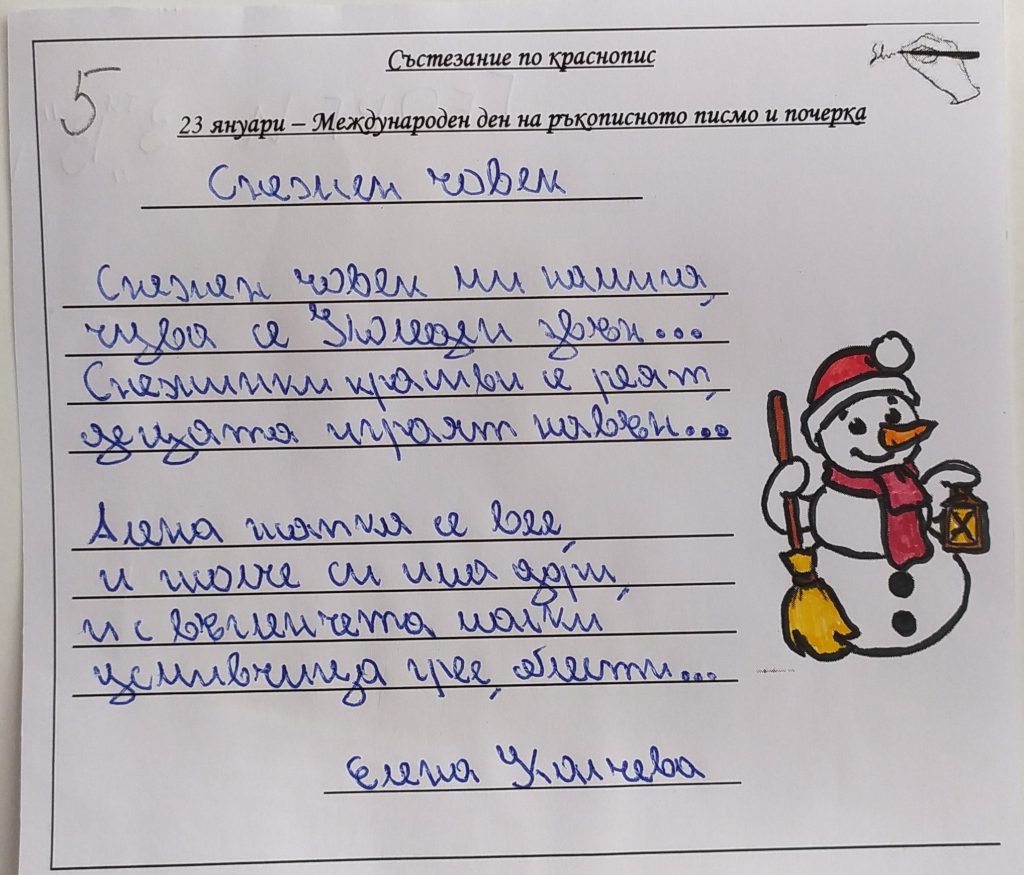 5
Състезание по краснопис
23 януари – Международен ден на ръкописното писмо и почерка
Снежен човек
Снежен човек ми намига,
чува се Коледен звън...
Снежинки красиви се реят,
децата играят навън...
Алена шапка се вее,
и шалче си има дори,
и с въгленчета малки
усмивчица грее, блести...
Елена